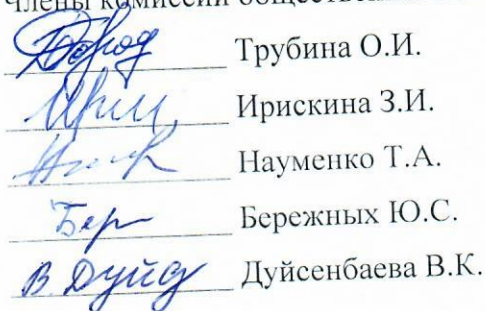 Члены комиссии
Трубина О.И.
Ирискина З.И.
Науменко Т.А.
Бер Бережных Ю.С.
В. Дуйс Дуйсенбаева В.К.